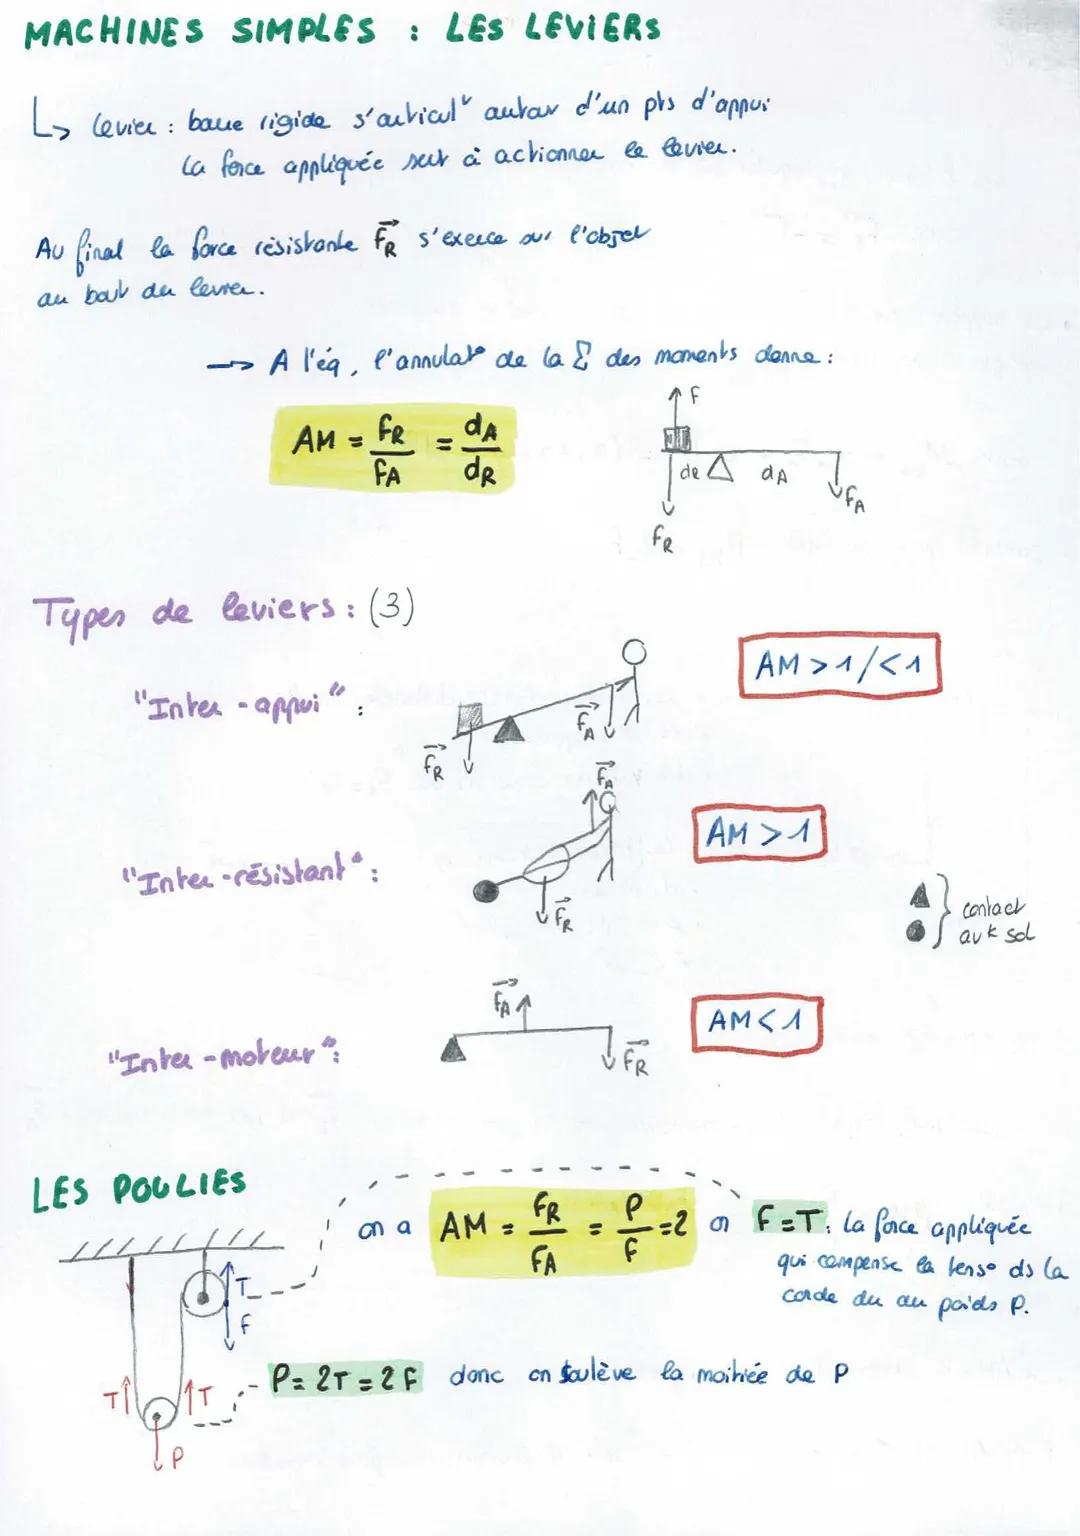 MACHINES SIMPLES : LES LEVIERS
↳ levier : barre rigide s'articul^t autour d'un pts d'appui
la force appliquée sert à actionner le levier.
Au final la force résistante F_R s'exerce sur l'objet
au bout du levier.
→ A l'éq, l'annulat° de la Σ des moments donne :
AM = F_R / F_A = d_A / d_R
F
d_R d_A
F_A
F_R
Types de leviers : (3)
"Inter-appui" :
F_R
F_A
AM > 1 / < 1
"Inter-résistant" :
F_A
F_R
AM > 1
contact
avk sol
"Inter-moteur" :
F_A
F_R
AM < 1
LES POULIES
on a AM = F_R / F_A = P / F = 2 or F = T : la force appliquée
qui compense la tens° ds la
corde du au poids P.
T
F
T T
P
P = 2T = 2F donc on soulève la moitiée de P